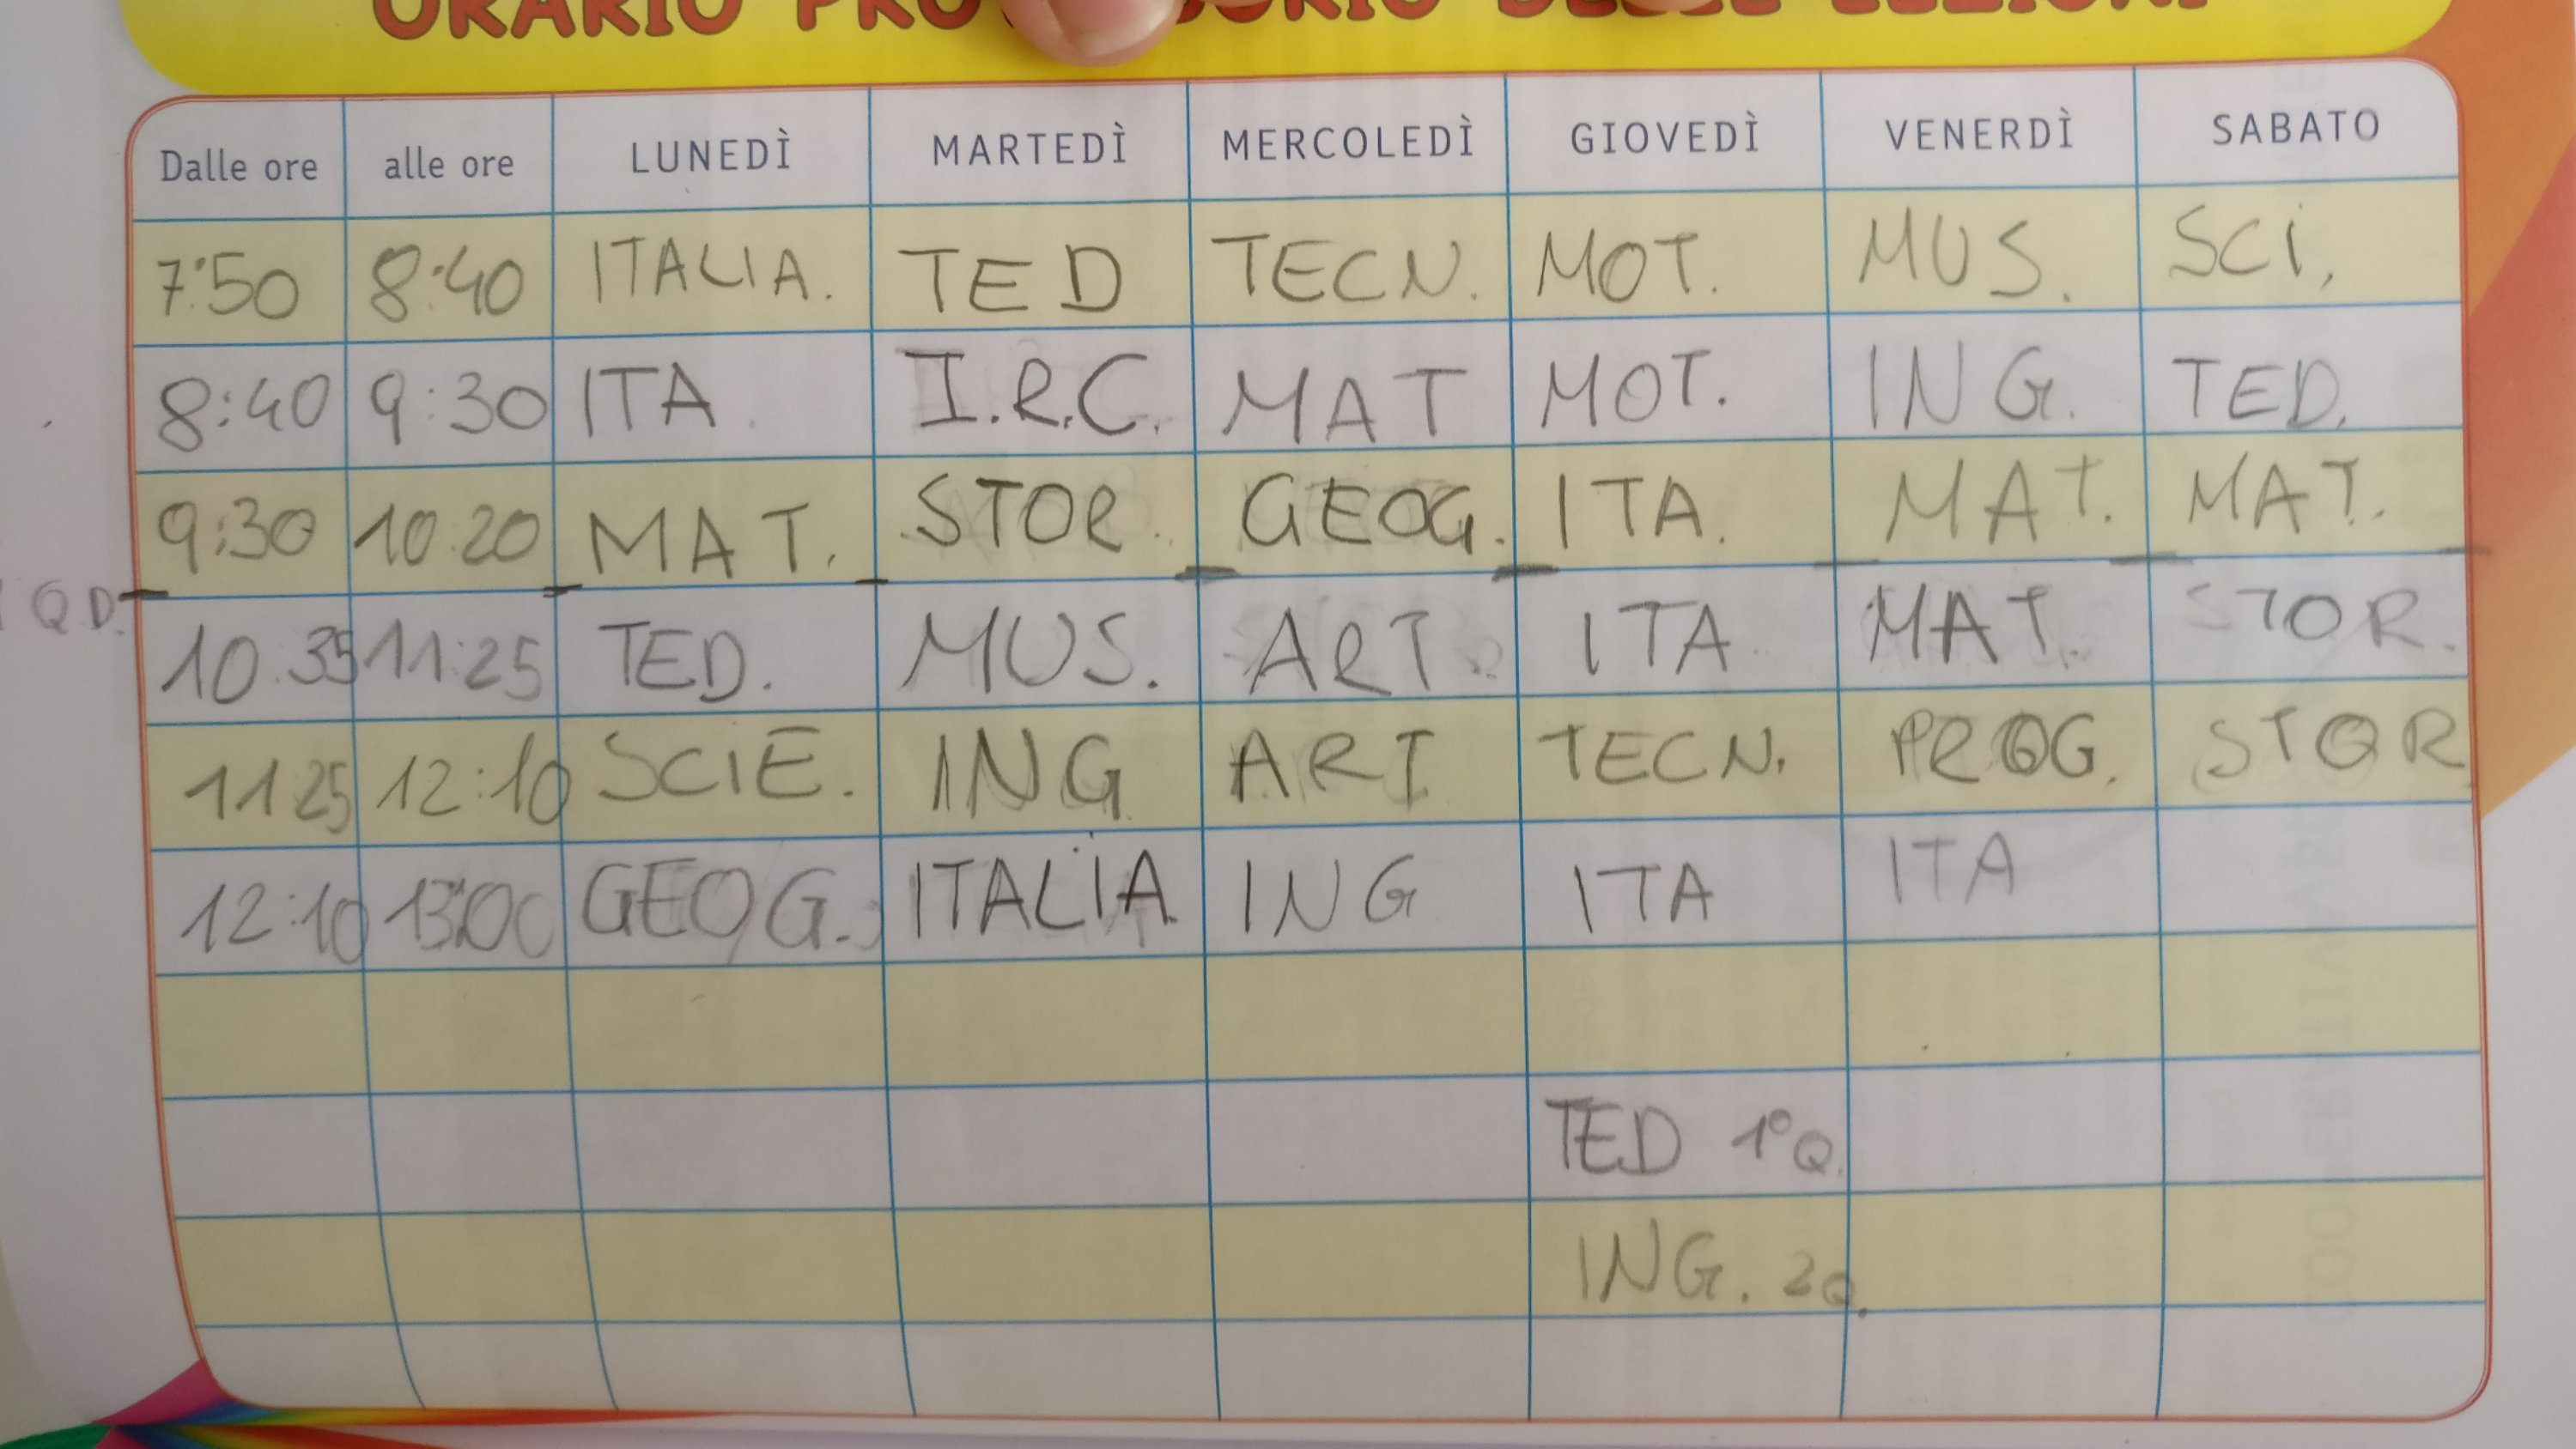 ORARIO DELLE LEZIONI
Dalle ore alle ore LUNEDÌ MARTEDÌ MERCOLEDÌ GIOVEDÌ VENERDÌ SABATO
7:50 8:40 ITALIA. TED TECN. MOT. MUS. SCI.
8:40 9:30 ITA. I.R.C. MAT MOT. ING. TED.
9:30 10:20 MAT. STOR. GEOG. ITA. MAT. MAT.
Q D.
10:35 11:25 TED. MUS. ART. ITA MAT. STOR.
11:25 12:10 SCIE. ING ART TECN. PROG. STOR
12:10 13:00 GEOG. ITALIA ING ITA ITA
TED 1°Q.
ING. 2Q.